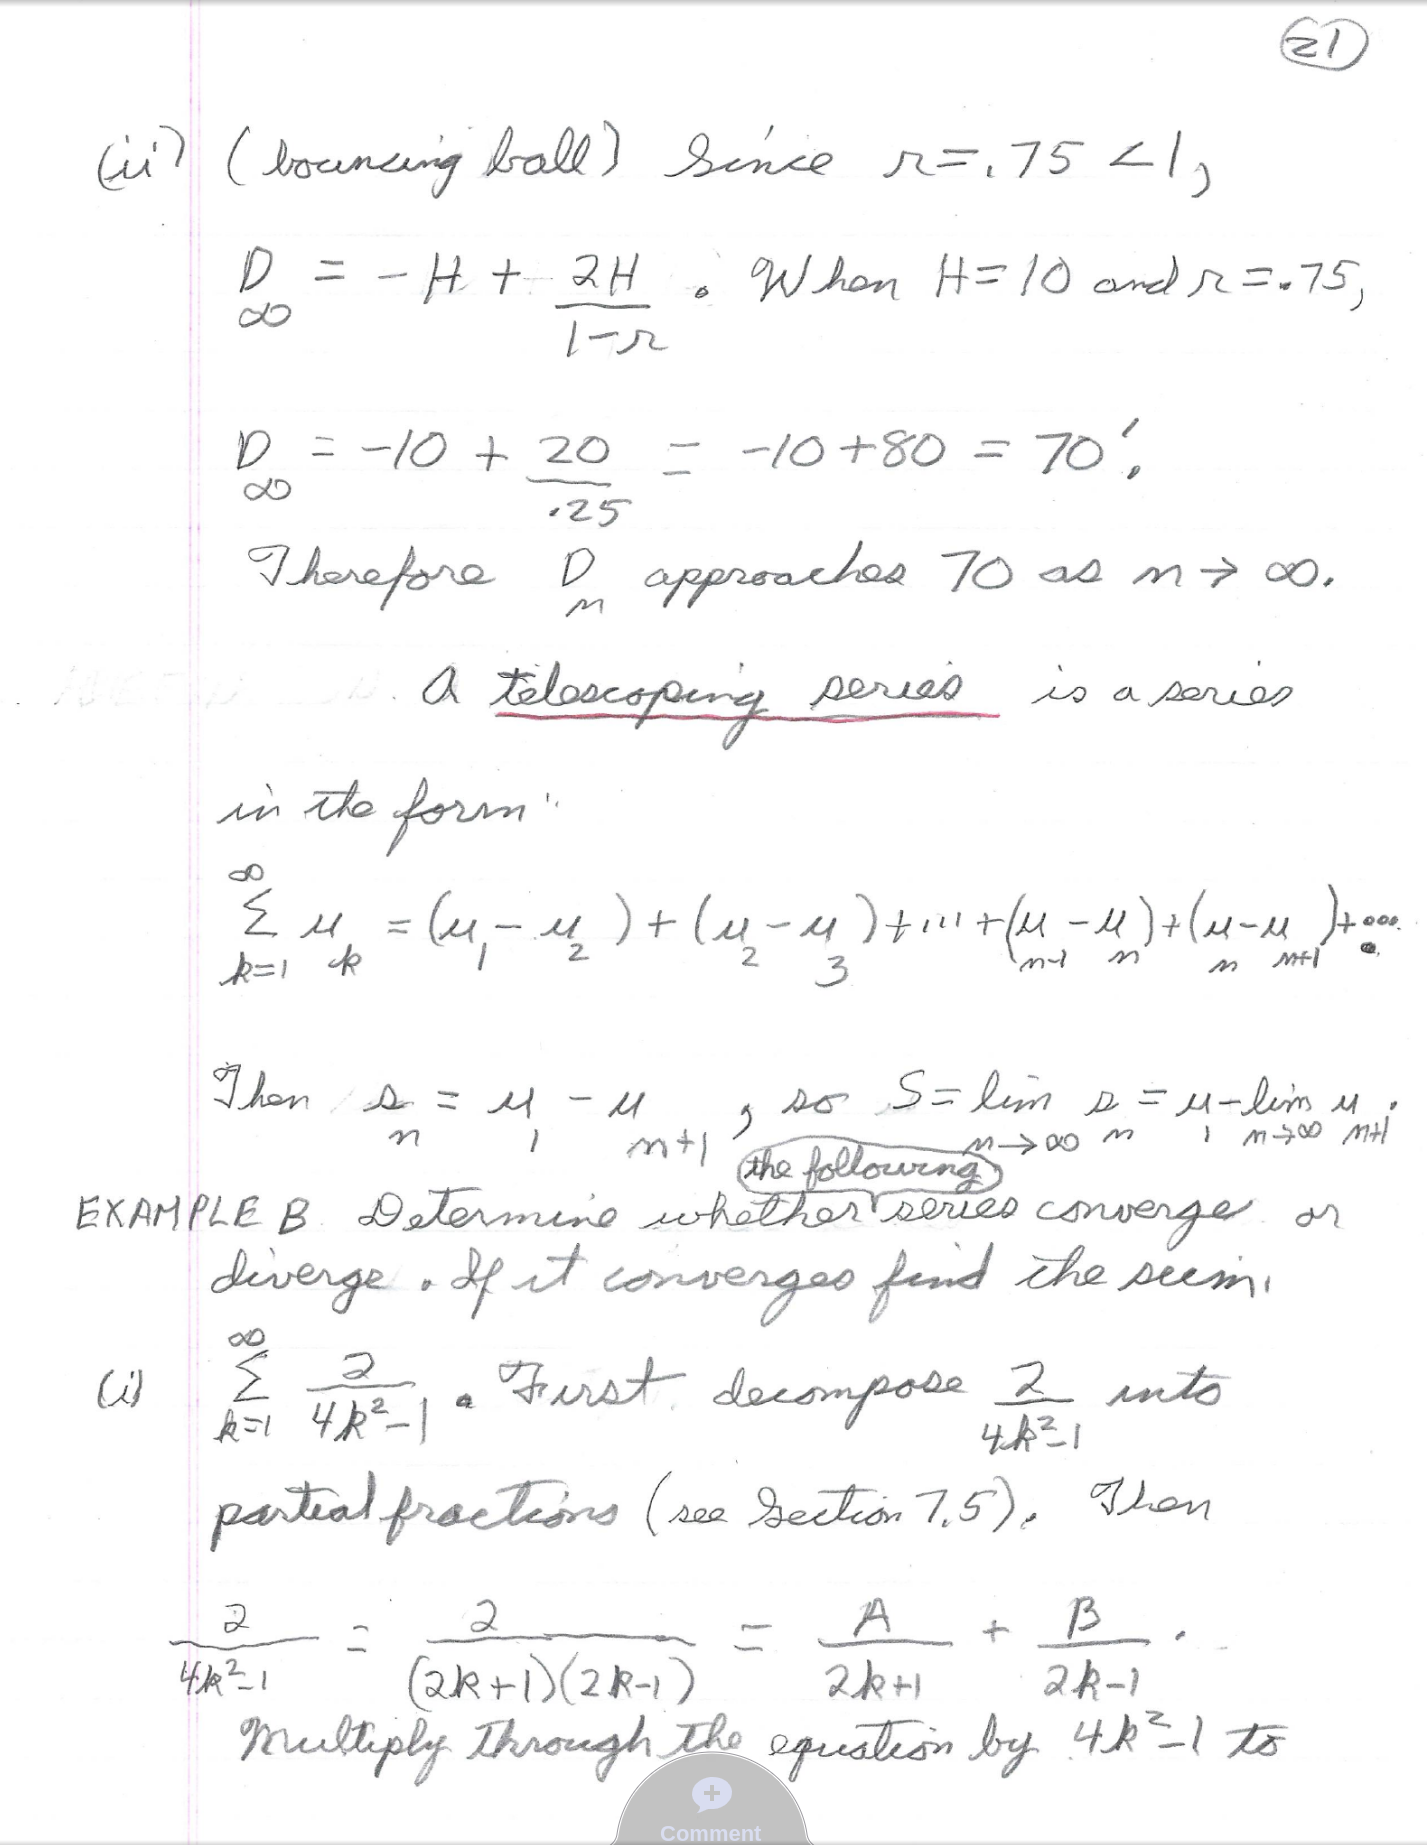 21
(ii) (bouncing ball) Since r = .75 < 1,
D∞ = -H + 2H/(1-r). When H = 10 and r = .75,
D∞ = -10 + 20/.25 = -10 + 80 = 70'.
Therefore Dn approaches 70 as n → ∞.
A telescoping series is a series
in the form:
∞
Σ uk = (u1 - u2) + (u2 - u3) + ... + (un-1 - un) + (un - un+1) + ....
k=1
Then sn = u1 - un+1, so S = lim n→∞ sn = u1 - lim n→∞ un+1.
the following
EXAMPLE B Determine whether series converge or
diverge. If it converges find the sum.
∞
(i) Σ 2/(4k²-1). First decompose 2/(4k²-1) into
k=1
partial fractions (see Section 7.5). Then
2/(4k²-1) = 2/((2k+1)(2k-1)) = A/(2k+1) + B/(2k-1).
Multiply through the equation by 4k²-1 to
Comment